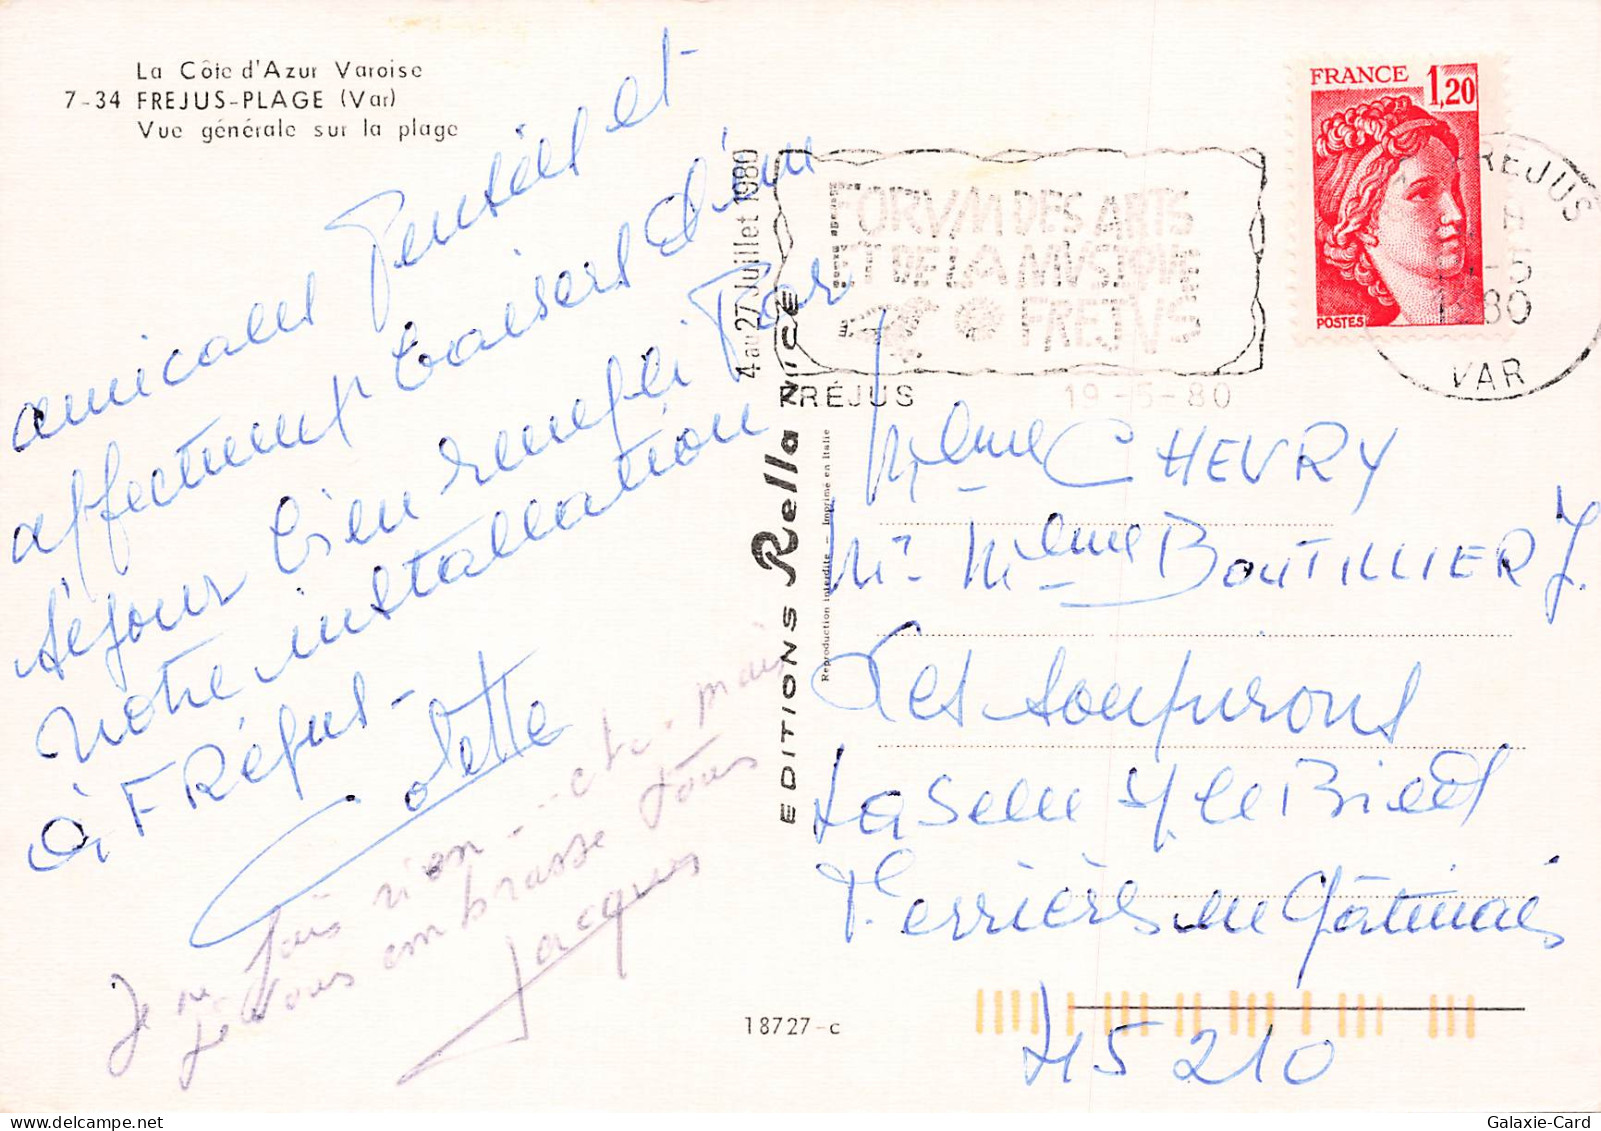 La Côte d'Azur Varoise
7-34 FREJUS-PLAGE (Var)
Vue générale sur la plage
amicales Pensées et
affectueux baisers d'un
séjour bien rempli Par
notre installation
à FRéjus-
Colette
Je ne fais rien - ... cto. mais
je vous embrasse tous
Jacques
18727-c
EDITIONS Rella NICE
Reproduction interdite — Imprimé en Italie
4 au 27 Juillet 1980
FORVM DES ARTS
ET DE LA MVSIQVE
FREJVS
FRÉJUS 19-5-80
FRANCE 1,20
POSTES
FREJUS
H
-5
1980
VAR
Mme CHEVRY
Mr Mme BOUTILLIER J.
Les Soupirons
La Selle s/ le Bied
Ferrières en Gâtinais
45 210
Galaxie-Card